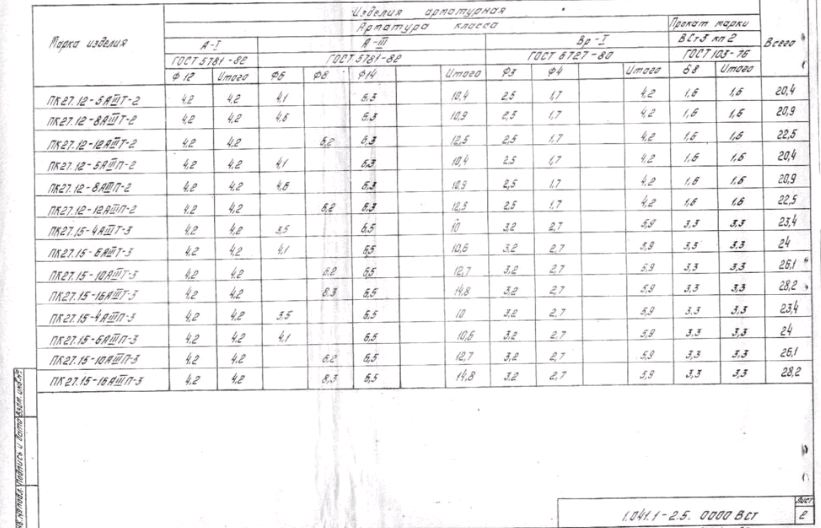 Изделия арматурная
Марка изделия Арматура класса Прокат марки Всего
А-I А-III Вр-I ВСт3 кп2
ГОСТ 5781-82 ГОСТ 5781-82 ГОСТ 6727-80 ГОСТ 103-76
Ф12 Итого Ф6 Ф8 Ф14 Итого Ф3 Ф4 Итого δ8 Итого
ПК27.12-5АIIIТ-2 4,2 4,2 4,1 6,3 10,4 2,5 1,7 4,2 1,6 1,6 20,4
ПК27.12-8АIIIТ-2 4,2 4,2 4,6 6,3 10,9 2,5 1,7 4,2 1,6 1,6 20,9
ПК27.12-12АIIIТ-2 4,2 4,2 6,2 6,3 12,5 2,5 1,7 4,2 1,6 1,6 22,5
ПК27.12-5АIIIП-2 4,2 4,2 4,1 6,3 10,4 2,5 1,7 4,2 1,6 1,6 20,4
ПК27.12-8АIIIП-2 4,2 4,2 4,6 6,3 10,9 2,5 1,7 4,2 1,6 1,6 20,9
ПК27.12-12АIIIП-2 4,2 4,2 6,2 6,3 12,5 2,5 1,7 4,2 1,6 1,6 22,5
ПК27.15-4АIIIТ-3 4,2 4,2 3,5 6,5 10 3,2 2,7 5,9 3,3 3,3 23,4
ПК27.15-6АIIIТ-3 4,2 4,2 4,1 6,5 10,6 3,2 2,7 5,9 3,3 3,3 24
ПК27.15-10АIIIТ-3 4,2 4,2 6,2 6,5 12,7 3,2 2,7 5,9 3,3 3,3 26,1
ПК27.15-16АIIIТ-3 4,2 4,2 8,3 6,5 14,8 3,2 2,7 5,9 3,3 3,3 28,2
ПК27.15-4АIIIП-3 4,2 4,2 3,5 6,5 10 3,2 2,7 5,9 3,3 3,3 23,4
ПК27.15-6АIIIП-3 4,2 4,2 4,1 6,5 10,6 3,2 2,7 5,9 3,3 3,3 24
ПК27.15-10АIIIП-3 4,2 4,2 6,2 6,5 12,7 3,2 2,7 5,9 3,3 3,3 26,1
ПК27.15-16АIIIП-3 4,2 4,2 8,3 6,5 14,8 3,2 2,7 5,9 3,3 3,3 28,2
Подпись и дата Взам. инв.№
1.041.1-2.5. 0000 ВСт
Лист
2